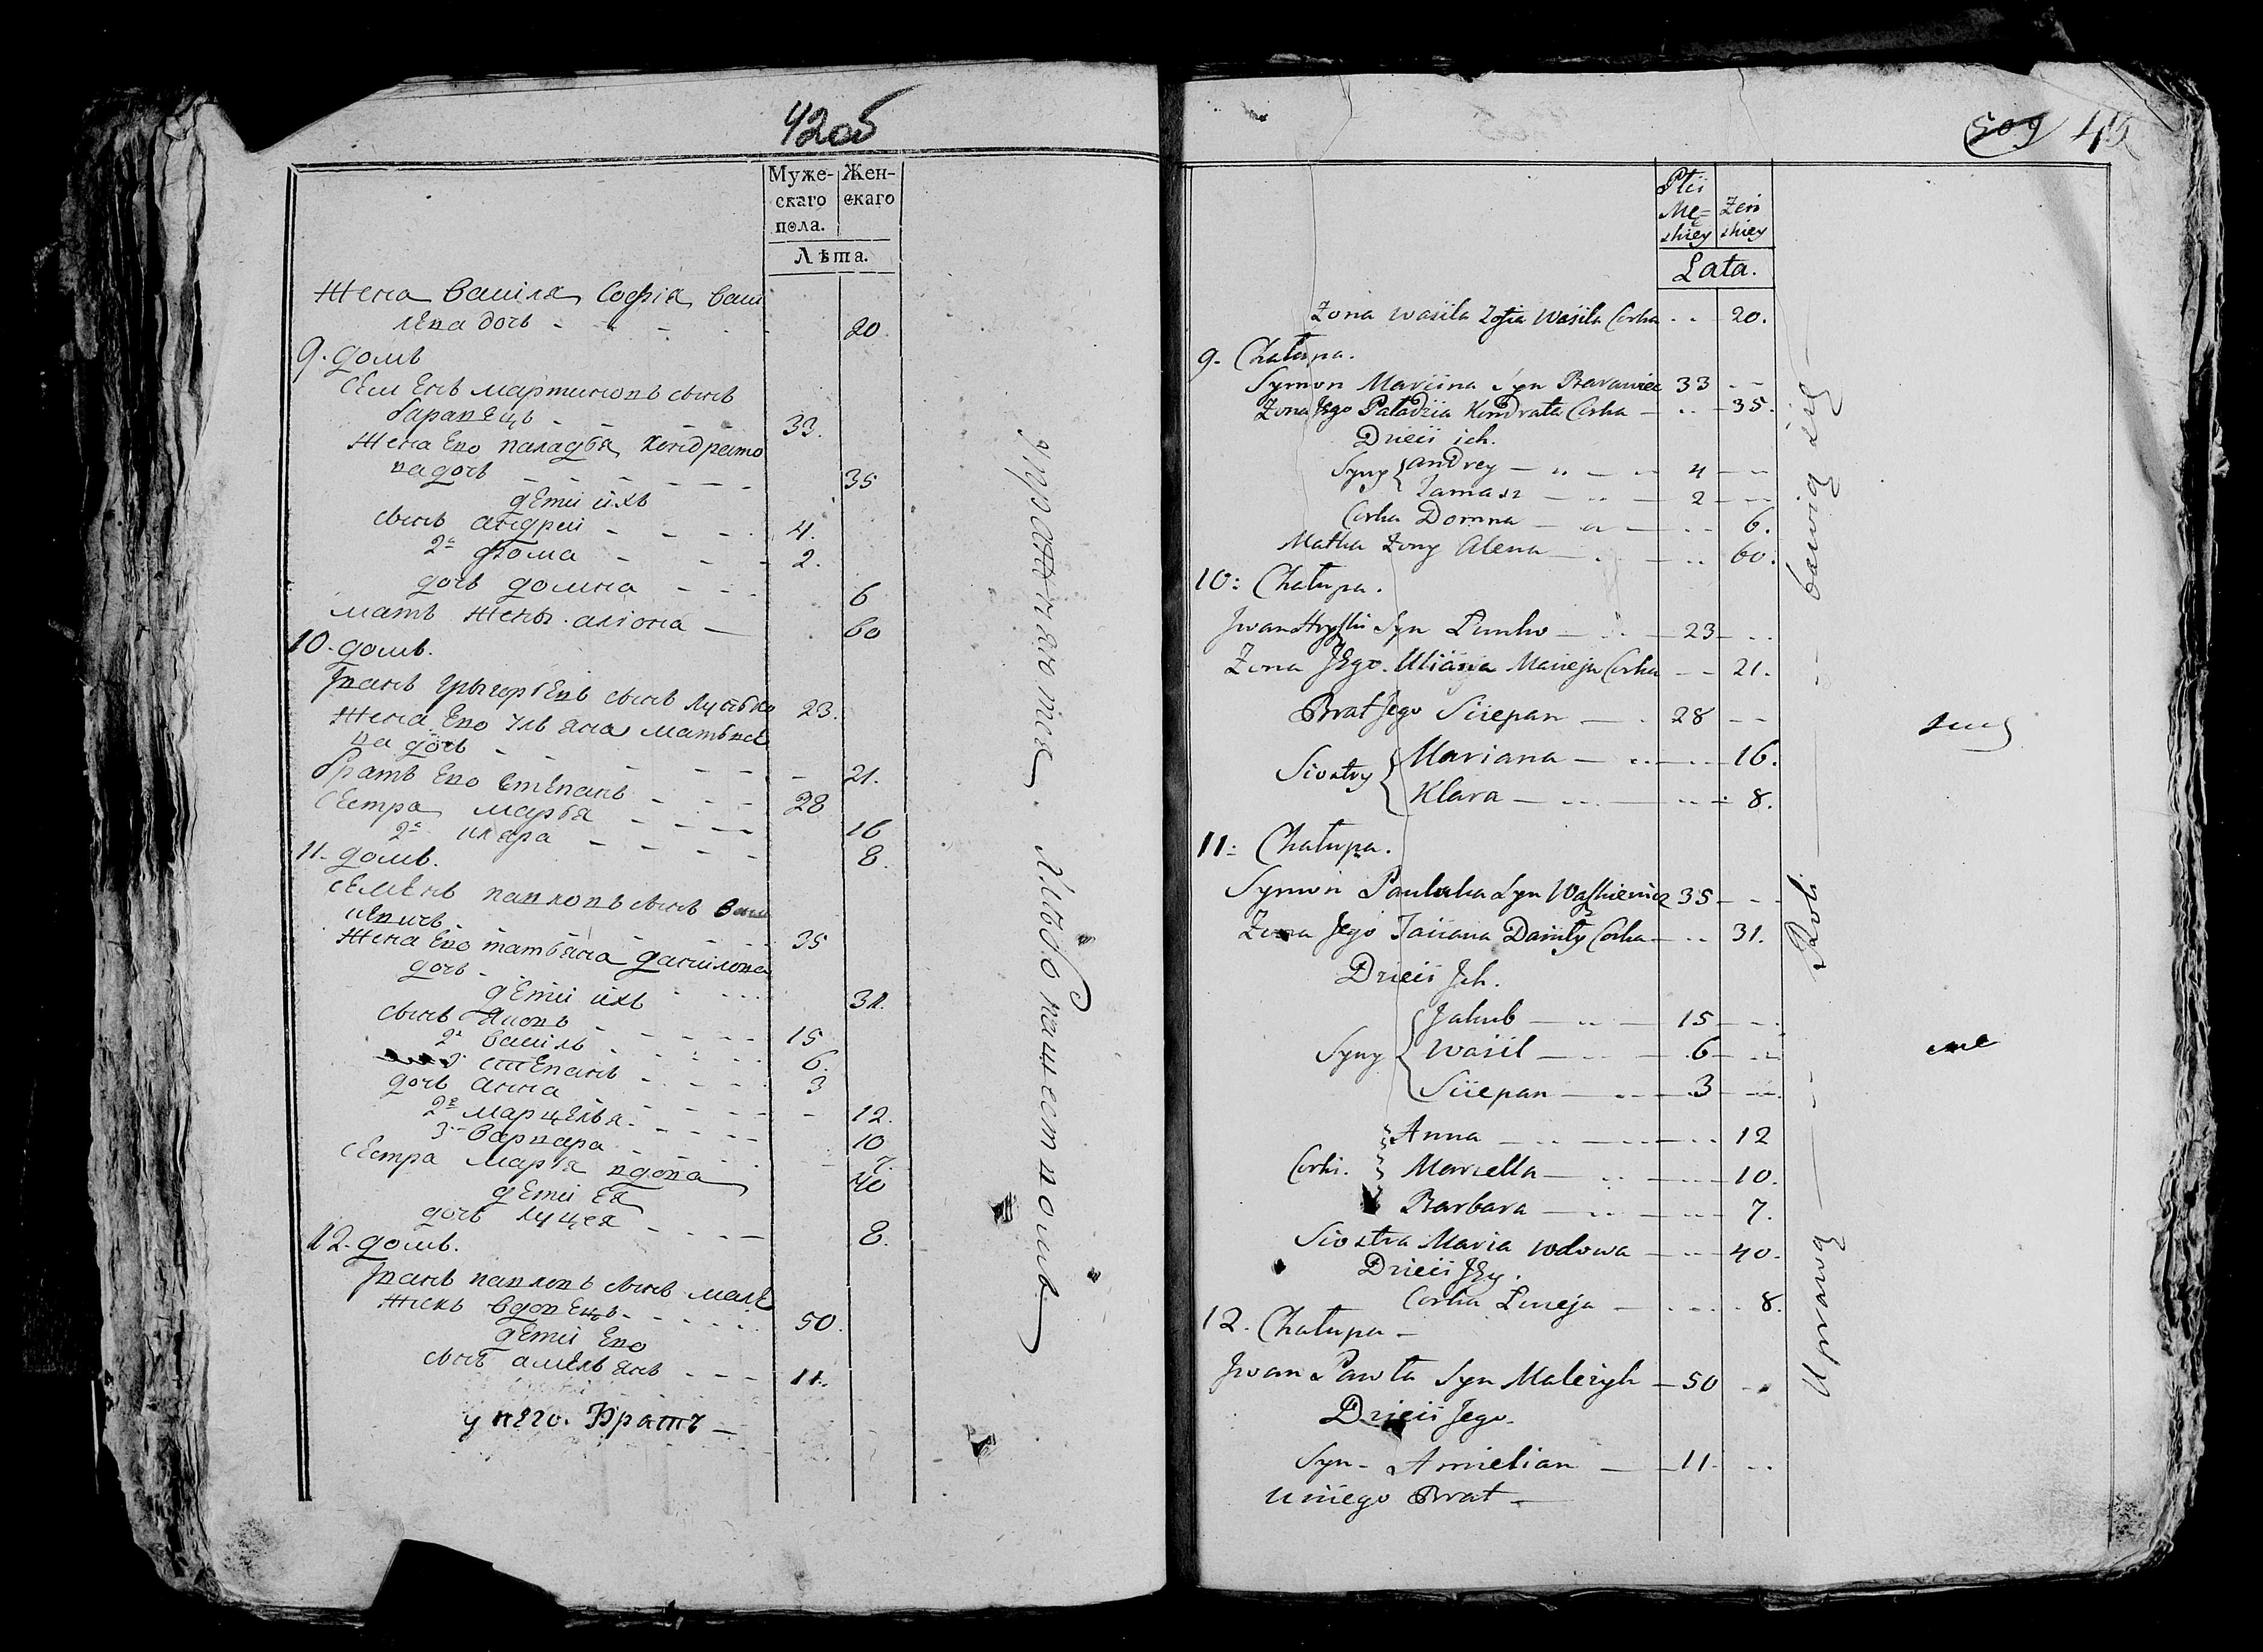 42об
Муже- Жен-
скаго скаго
пола.
Лѣта.
Жена Василя Софія Васи
лева дочь - - - - 20.
9. домъ
Семенъ мартиновъ сынъ
баранецъ - - - 33.
Жена Ево паладья Кондрато
ва дочь - - - - 35
дети ихъ
сынъ андрей - - - 4.
2й фома - - - 2.
дочь домна - - - 6
мать жены алiона — 60
10. домъ.
Iванъ григорьевъ сынъ 23.
Жена Ево Ульяна матвее
ва дочь - - - - 21.
братъ Ево степанъ - - - 28
сестра марья - - - 16
2я клара - - - - 8.
11. домъ.
семенъ павловъ сынъ Ваш
кевичъ - - - - 35
Жена Ево татьяна данилова
дочь - - - 31.
дети ихъ
сынъ яковъ - - - - 15.
2й Василь - - - - 6.
3й степанъ - - - - 3
дочь анна - - - - 12.
2я марцелья - - - - 10
3я варвара - - - - 7.
сестра марья вдова 40
дети Ея
дочь луцея - - - - 8.
12. домъ.
Iванъ павловъ сынъ мале
жикъ вдовецъ - - - - 50.
дети Ево
сынъ амельянъ - - - 11.
у него братъ —
упражняются хлебопашествомъ.
509 43
Płci
Mę= Żeń
skiey skiey
Lata.
Zona Wasila Zofia Wasila Corka - - 20.
9. Chałupa.
Symon Marcina Syn Baraniec 33 - -
Zona Jego Paładzia Kondrata Corka - - 35.
Dzieci ich.
Syny { Andrey — 4 - -
Tamasz — 2 - -
Corka Domna — 6.
Matka Zony Alena — 60.
10: Chałupa.
Jwan Hryszki Syn Łunko — 23 - -
Zona Jego Uliana Macieja Corka - - 21.
Brat Jego Sciepan — 28 - -
Siostry { Mariana — 16.
Klara — 8.
11: Chałupa.
Symon Pauluka Syn Waszkiewicz 35 - -
Zona Jego Taciana Daniły Corka - - 31.
Dzieci Jch.
Syny { Jakub — 15 - -
Wasil — 6 - -
Sciepan — 3 - -
Corki. { Anna — 12
Marcella — 10.
Barbara — 7.
Siostra Maria wdowa — 40.
Dzieci Jey.
Corka Łuceja — 8.
12. Chałupa —
Jwan Pawła Syn Małeżyk — 50 - -
Dzieci Jego.
Syn - Amielian — 11 - -
U niego Brat —
Uprawą — Roli — bawią się